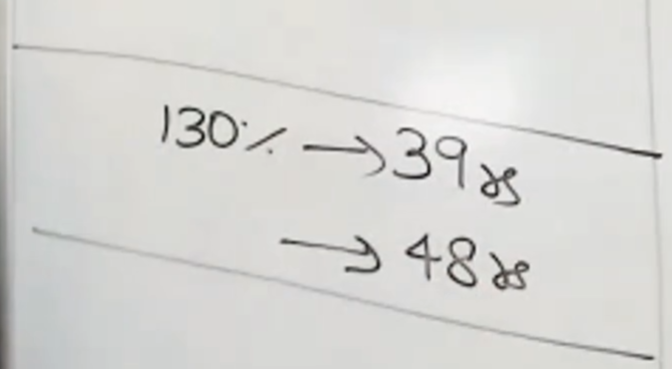 130% → 39 rs
→ 48 rs